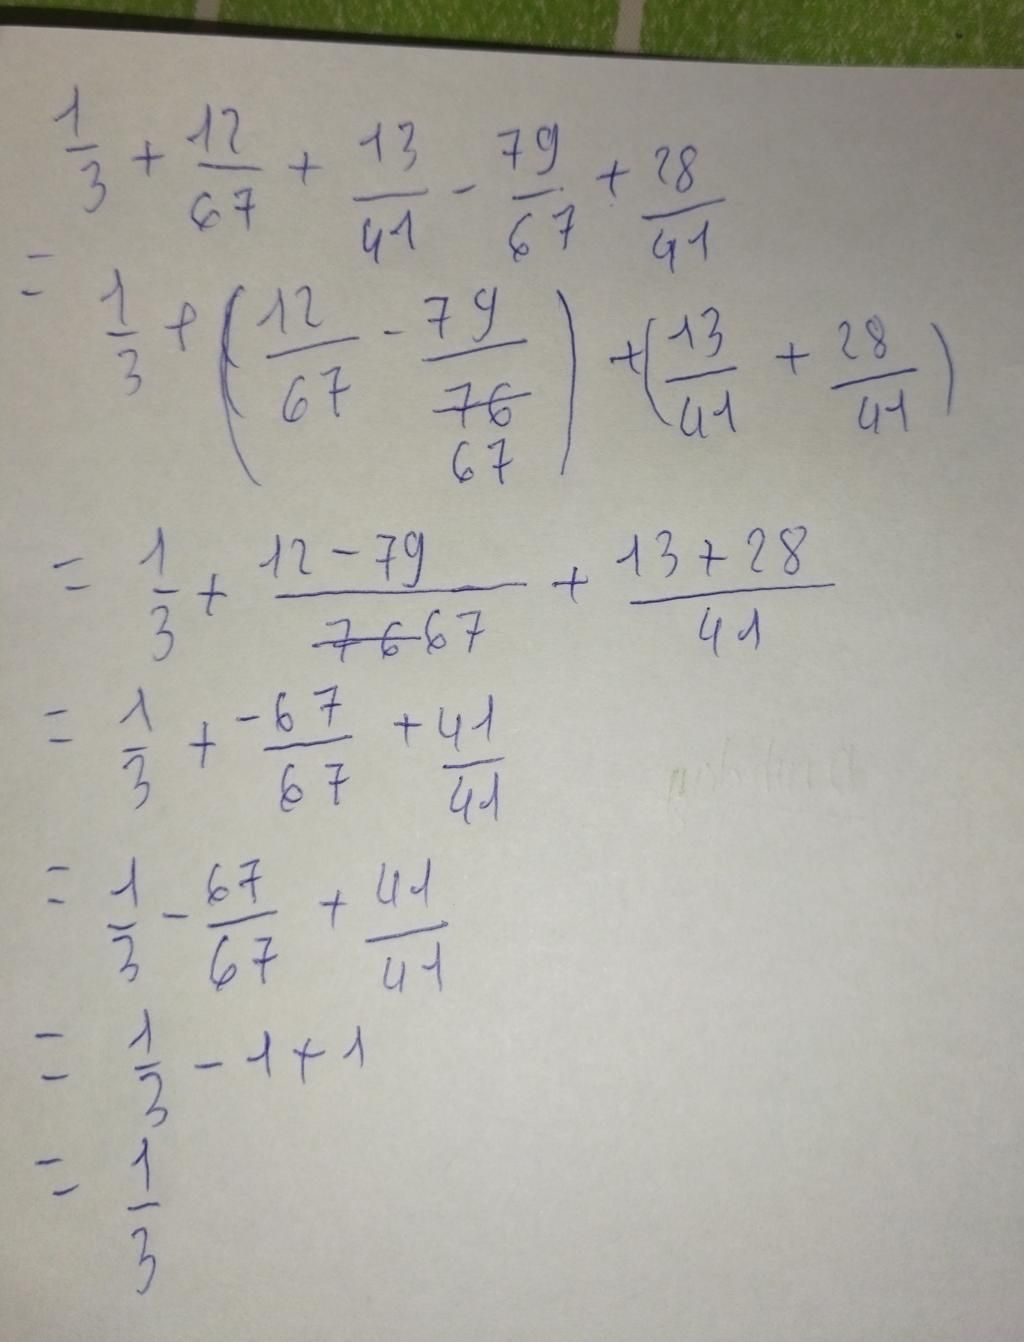 1/3 + 12/67 + 13/41 - 79/67 + 28/41
= 1/3 + (12/67 - 79/67) + (13/41 + 28/41)
= 1/3 + (12 - 79)/67 + (13 + 28)/41
= 1/3 + -67/67 + 41/41
= 1/3 - 67/67 + 41/41
= 1/3 - 1 + 1
= 1/3